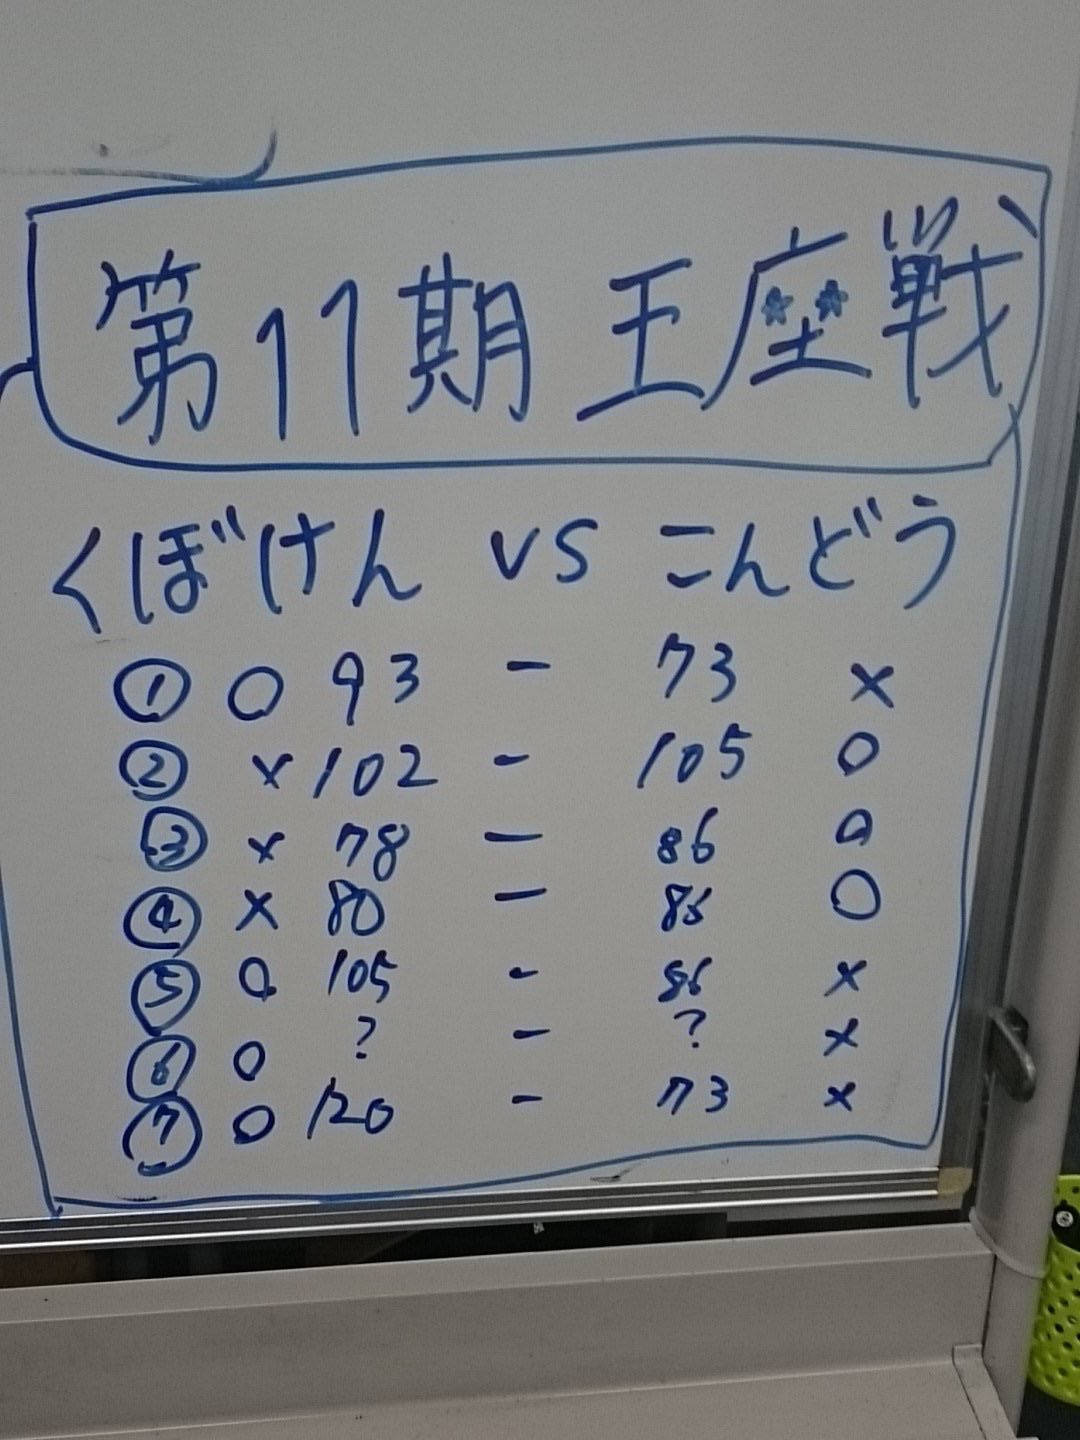 第11期王座戦
くぼけん vs こんどう
① ○ 93 - 73 ×
② × 102 - 105 ○
③ × 78 - 86 ○
④ × 80 - 86 ○
⑤ ○ 105 - 86 ×
⑥ ○ ? - ? ×
⑦ ○ 120 - 73 ×